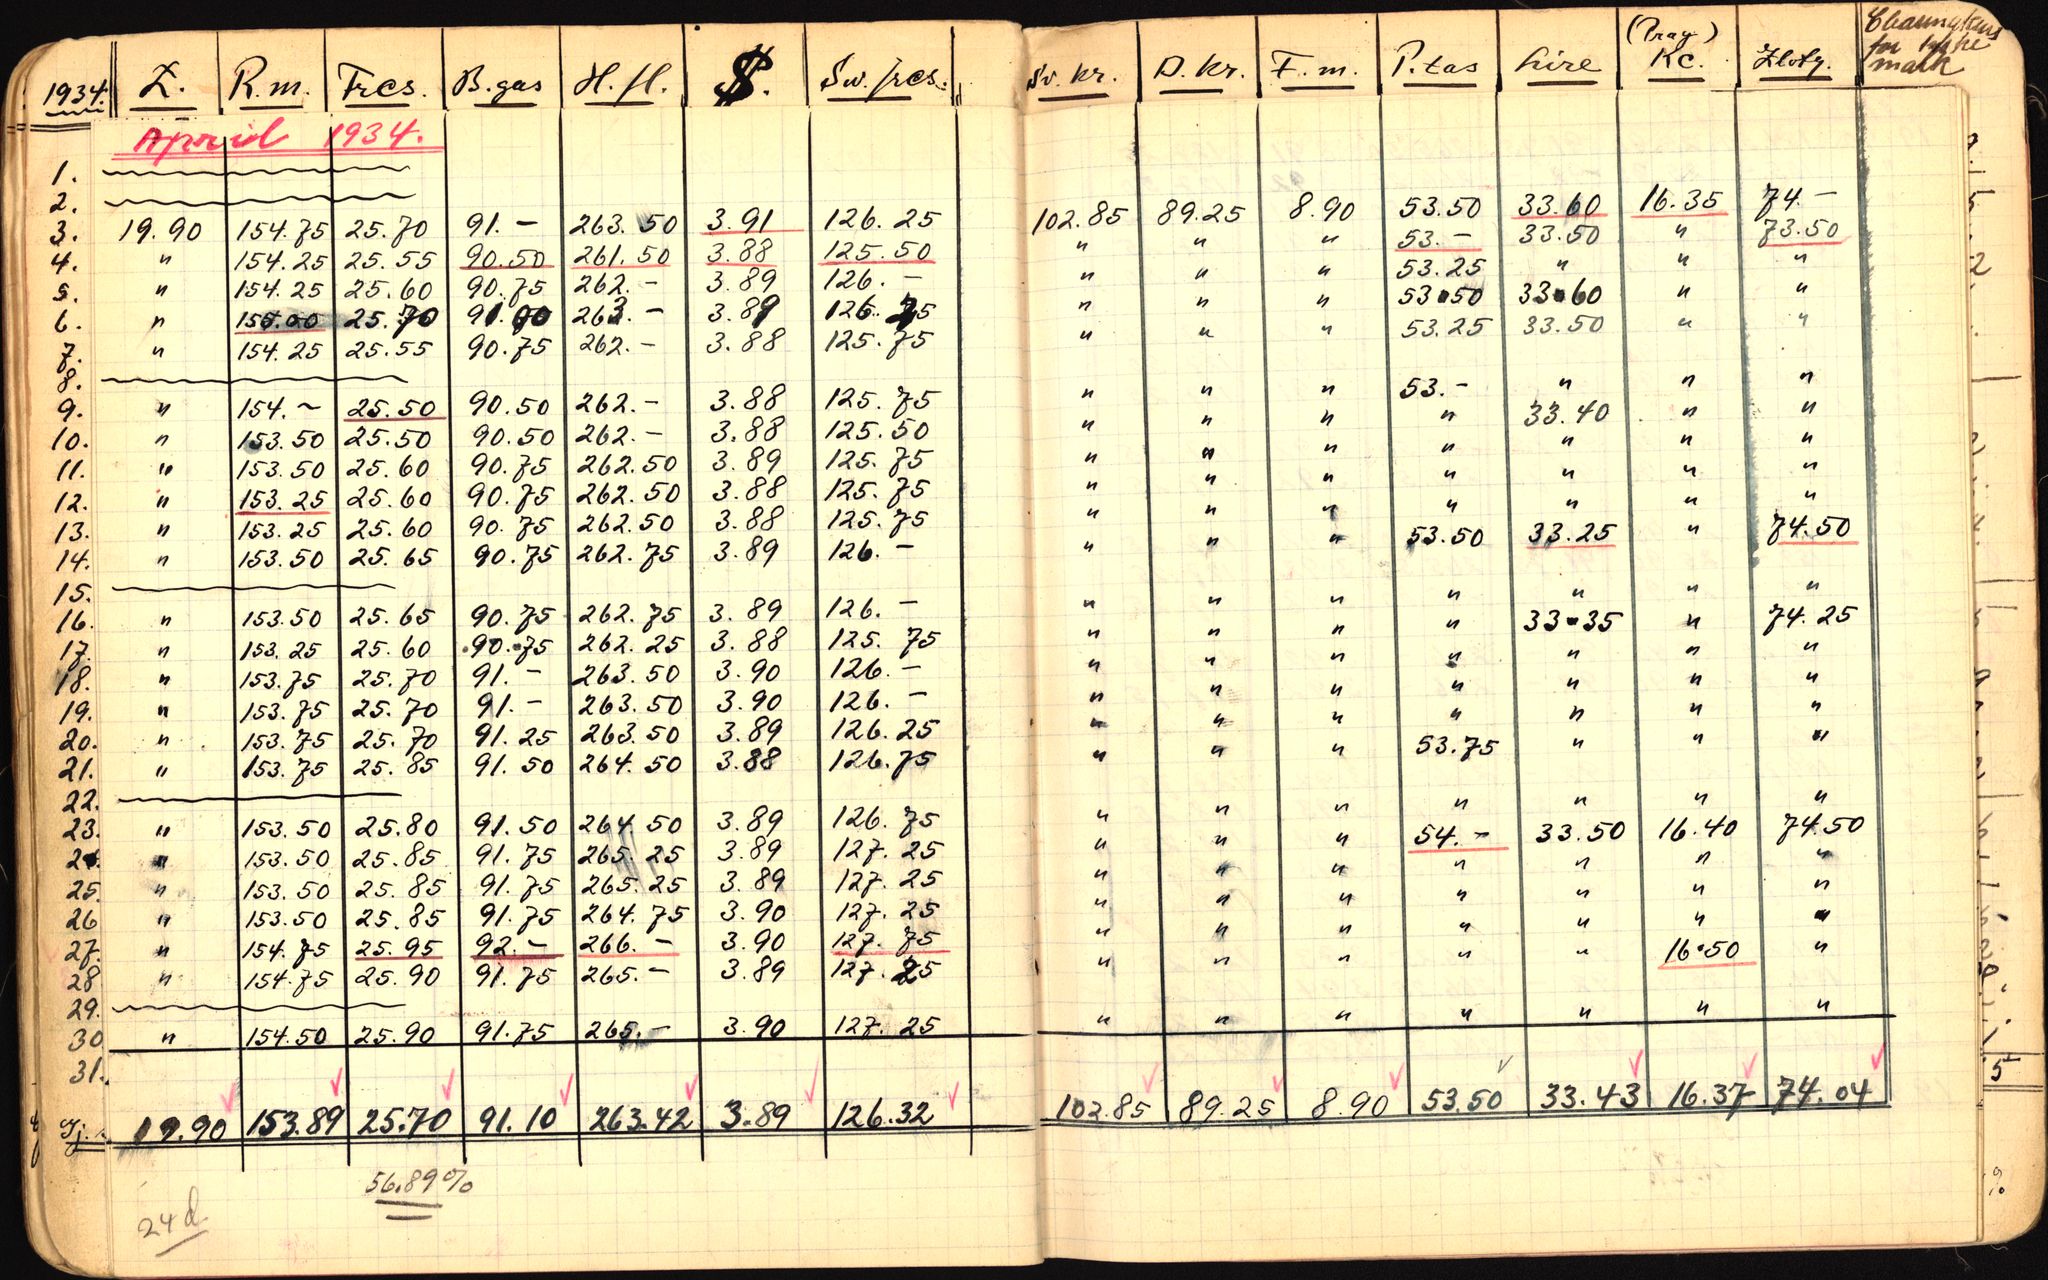 1934. £. R.m. Frcs. B.gas H.fl. $. Sw. frcs. Sv. kr. D. Kr. F. m. P.tas Lire (Prag) Kc. Zloty. for
mark
April 1934.
1.
2.
3. 19.90 154.75 25.70 91.- 263.50 3.91 126.25 102.85 89.25 8.90 53.50 33.60 16.35 74.-
4. " 154.25 25.55 90.50 261.50 3.88 125.50 " " " 53.- 33.50 " 73.50
5. " 154.25 25.60 90.75 262.- 3.89 126.- " " " 53.25 " " "
6. " 155.00 25.70 91.00 263.- 3.89 126.25 " " " 53.50 33.60 " "
7. " 154.25 25.55 90.75 262.- 3.88 125.75 " " " 53.25 33.50 " "
8.
9. " 154.- 25.50 90.50 262.- 3.88 125.75 " " " 53.- " " "
10. " 153.50 25.50 90.50 262.- 3.88 125.50 " " " " 33.40 " "
11. " 153.50 25.60 90.75 262.50 3.89 125.75 " " " " " " "
12. " 153.25 25.60 90.75 262.50 3.88 125.75 " " " " " " "
13. " 153.25 25.60 90.75 262.50 3.88 125.75 " " " " " " "
14. " 153.50 25.65 90.75 262.75 3.89 126.- " " " 53.50 33.25 " 74.50
15.
16. " 153.50 25.65 90.75 262.75 3.89 126.- " " " " " " "
17. " 153.25 25.60 90.75 262.25 3.88 125.75 " " " " 33.35 " 74.25
18. " 153.75 25.70 91.- 263.50 3.90 126.- " " " " " " "
19. " 153.75 25.70 91.- 263.50 3.90 126.- " " " " " " "
20. " 153.75 25.70 91.25 263.50 3.89 126.25 " " " " " " "
21. " 153.75 25.85 91.50 264.50 3.88 126.75 " " " 53.75 " " "
22.
23. " 153.50 25.80 91.50 264.50 3.89 126.75 " " " " " " "
24. " 153.50 25.85 91.75 265.25 3.89 127.25 " " " 54.- 33.50 16.40 74.50
25. " 153.50 25.85 91.75 265.25 3.89 127.25 " " " " " " "
26 " 153.50 25.85 91.75 264.75 3.90 127.25 " " " " " " "
27. " 154.75 25.95 92.- 266.- 3.90 127.75 " " " " " " "
28 " 154.75 25.90 91.75 265.- 3.89 127.25 " " " " " 16.50 "
29.
30 " 154.50 25.90 91.75 265.- 3.90 127.25 " " " " " " "
31.
Gj. 19.90 153.89 25.70 91.10 263.42 3.89 126.32 102.85 89.25 8.90 53.50 33.43 16.37 74.04
56.89%
24 d